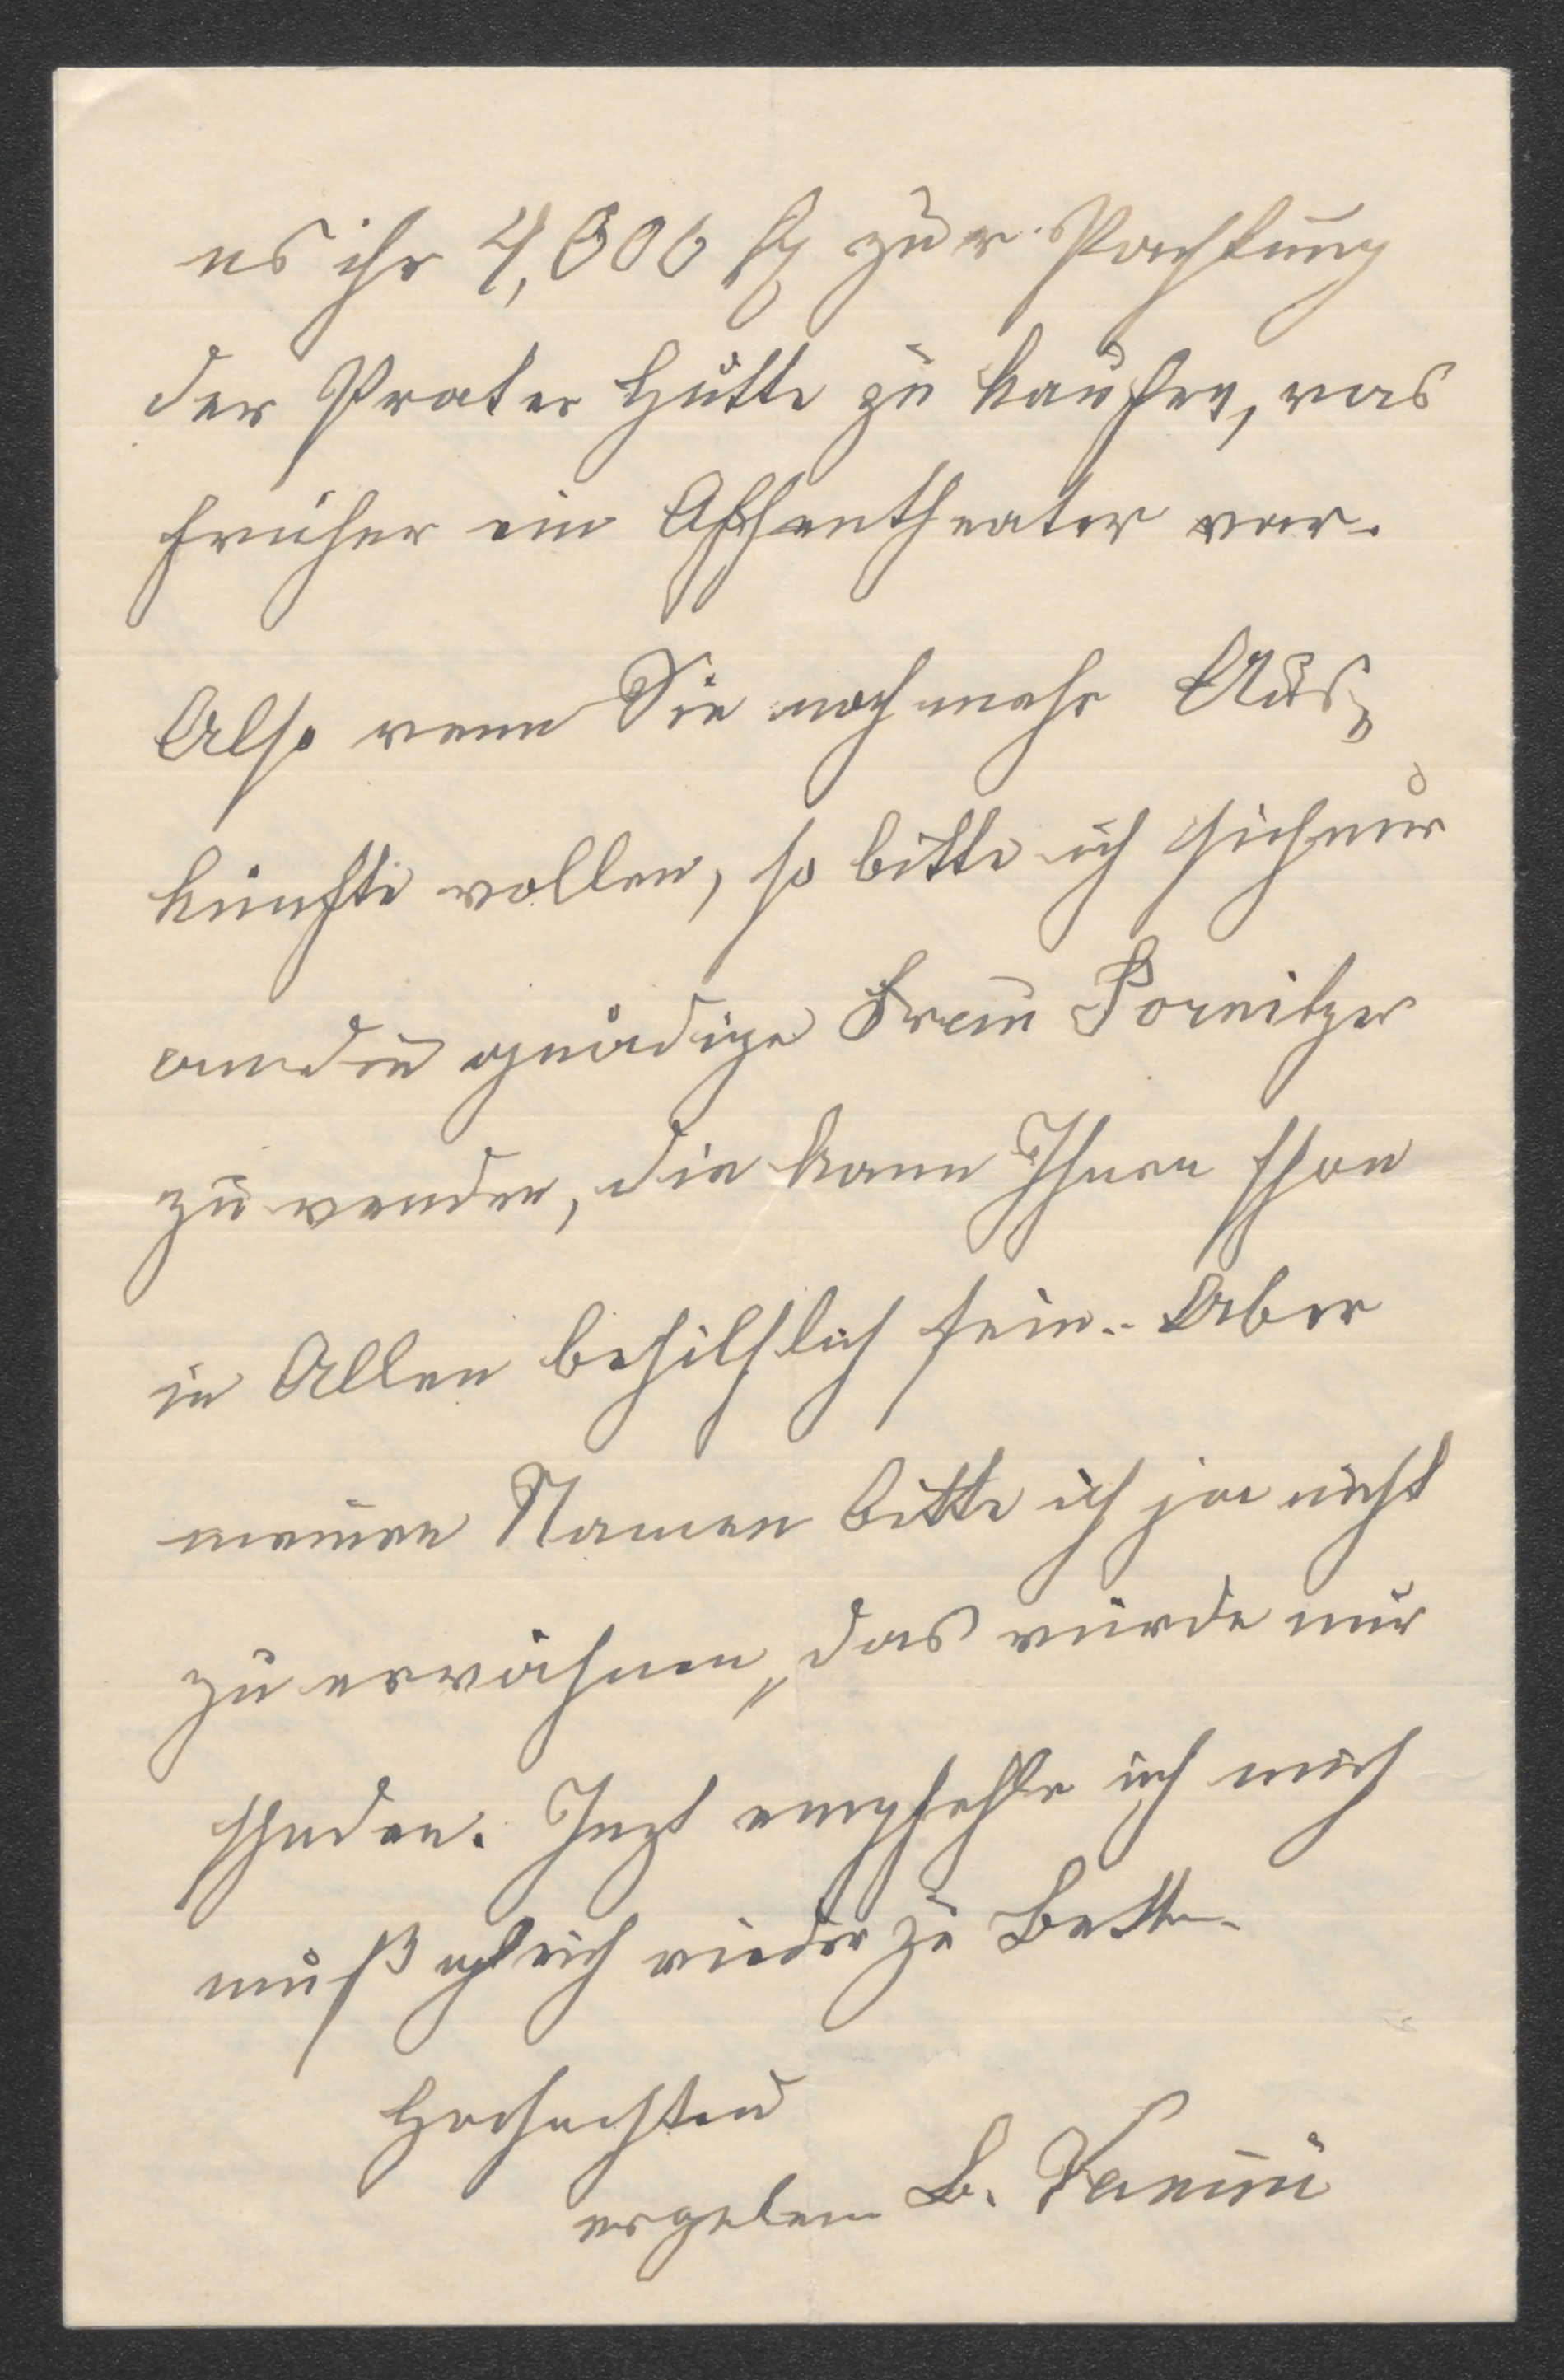 es ihr 4,000 fl zur Pachtung
der Prater Hütte zu kaufen, was
früher ein Affentheater war.
Also wenn Sie noch mehr Aus-
künfte wollen, so bitte ich sich nur
an die gnädige Frau Pornitzer
zu wenden, die kann Ihnen schon
in Allen behilflich sein. Aber
meinen Namen bitte ich ja nicht
zu erwähnen, das würde nur
schaden. Jezt empfehle ich mich
muß gleich wieder zu Bette.
Hochachtend
ergeben B.